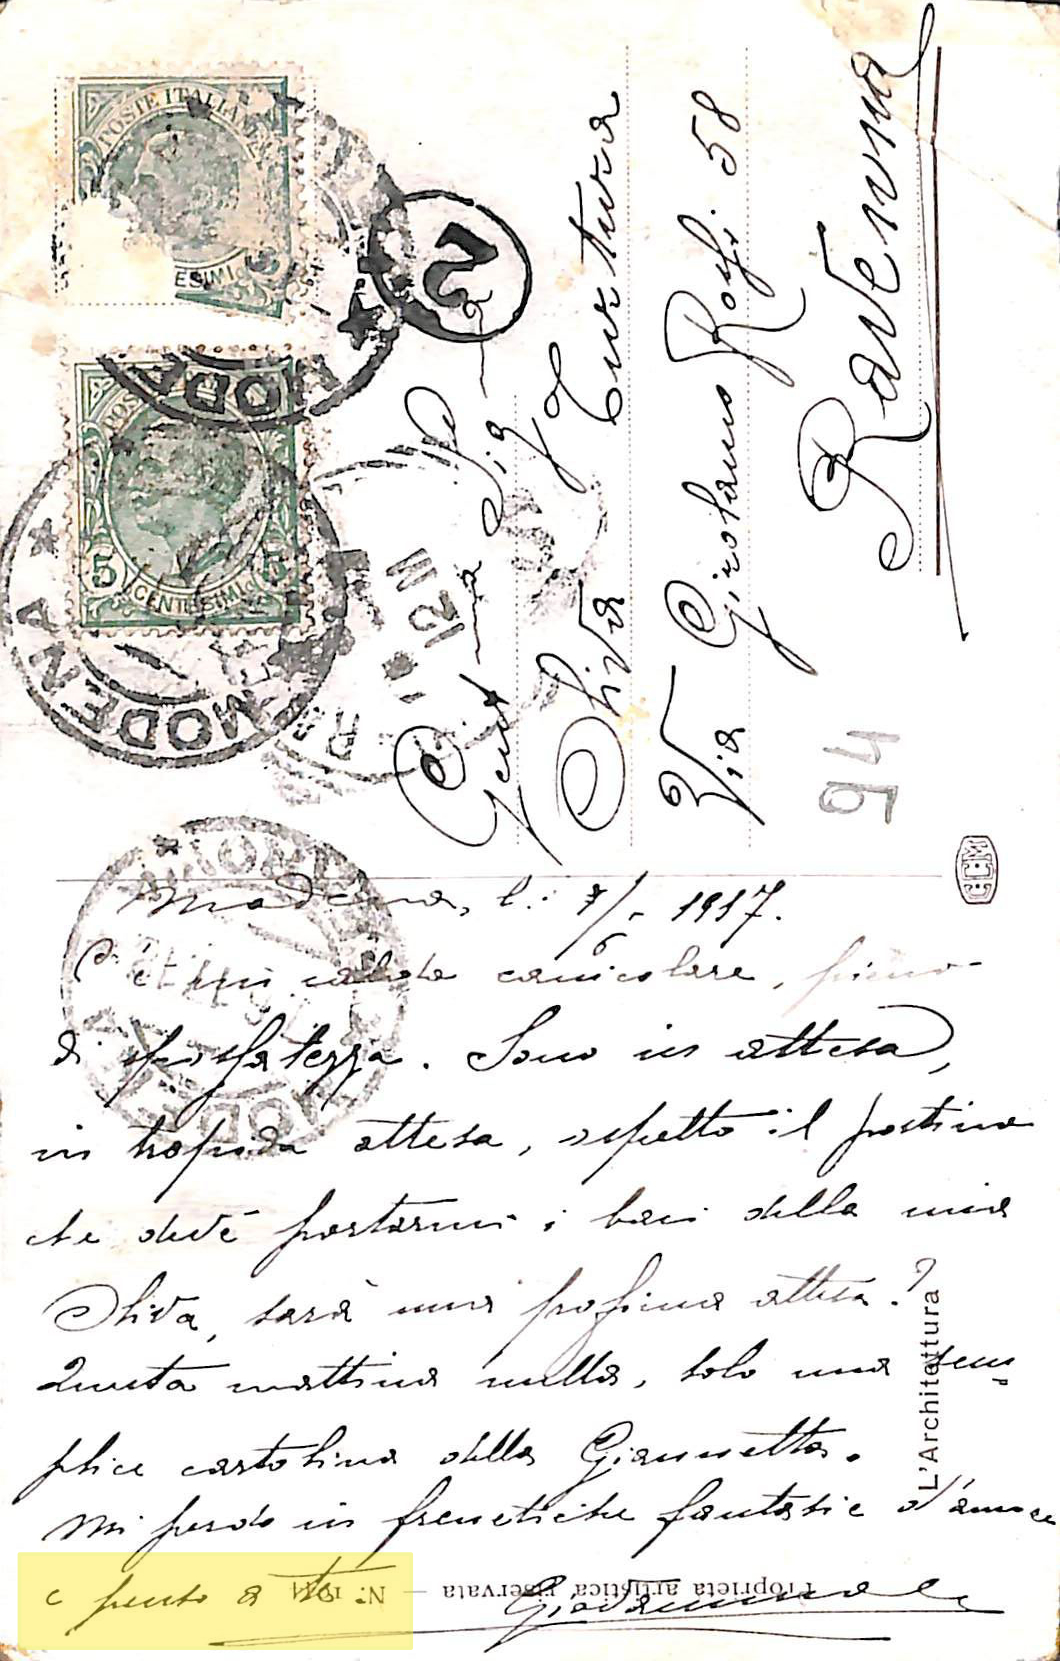 POSTE ITALIANE
ESIMI
5 CENTESIMI 5
MODENA
MODENA
2
12 III
Gent.ma Sig.na
Oliva Turtura
Via Girolamo Rossi. 58
Ravenna
94
CCM
Modena, li: 7/6 1917.
C'è un caldo canicolare, pieno
di spossatezza. Sono in attesa,
in trepida attesa, aspetto il postino
che deve portarmi i baci della mia
Oliva, sarà una prossima attesa?
Questa mattina nulla, solo una sem-
plice cartolina della Giannetta.
Mi perdo in frenetiche fantasie d'amore
e penso a te.
L'Architettura
N. 191 — Proprietà artistica riservata